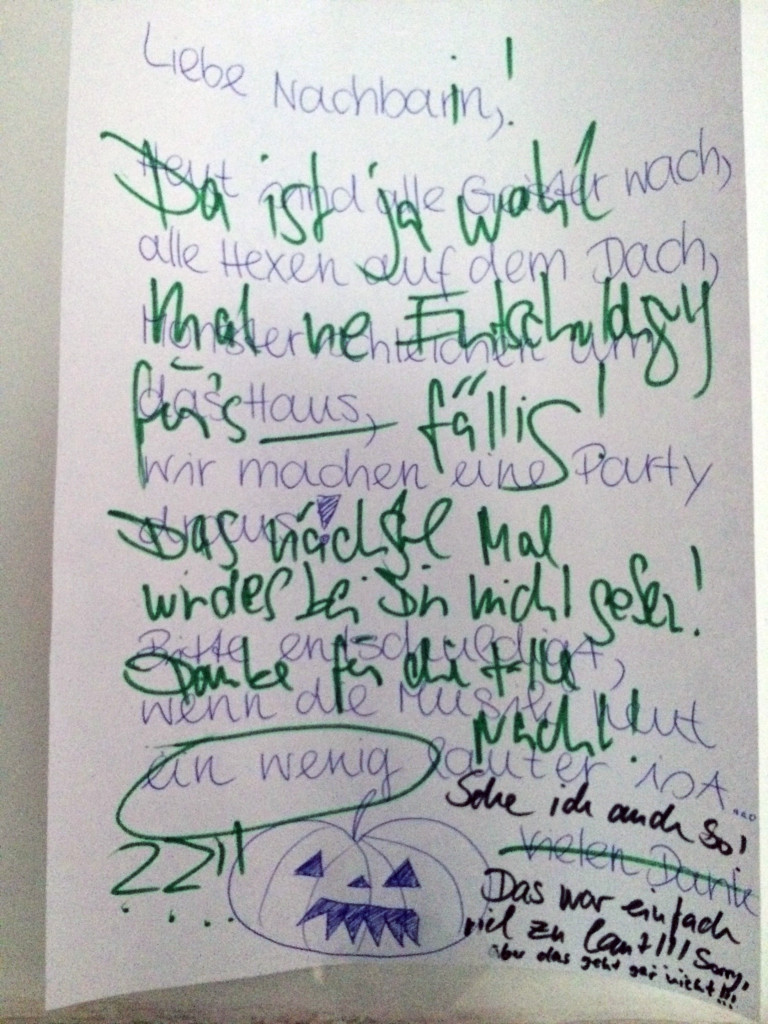 Liebe Nachbarin,!
Heut sind alle Geister wach,
alle Hexen auf dem Dach,
Monster schleichen um
das Haus,
wir machen eine Party
draus!
Bitte entschuldigt,
wenn die Musik heut
ein wenig lauter ist...
vielen Dank
Da ist ja wohl
mal ne
fürs Haus, fällig!
Das nächste Mal
bei nicht
Danke für die
Nacht!
??!!
Sehe ich auch so!
Das war einfach
viel zu laut!!! Sorry,
aber das geht gar nicht!!!